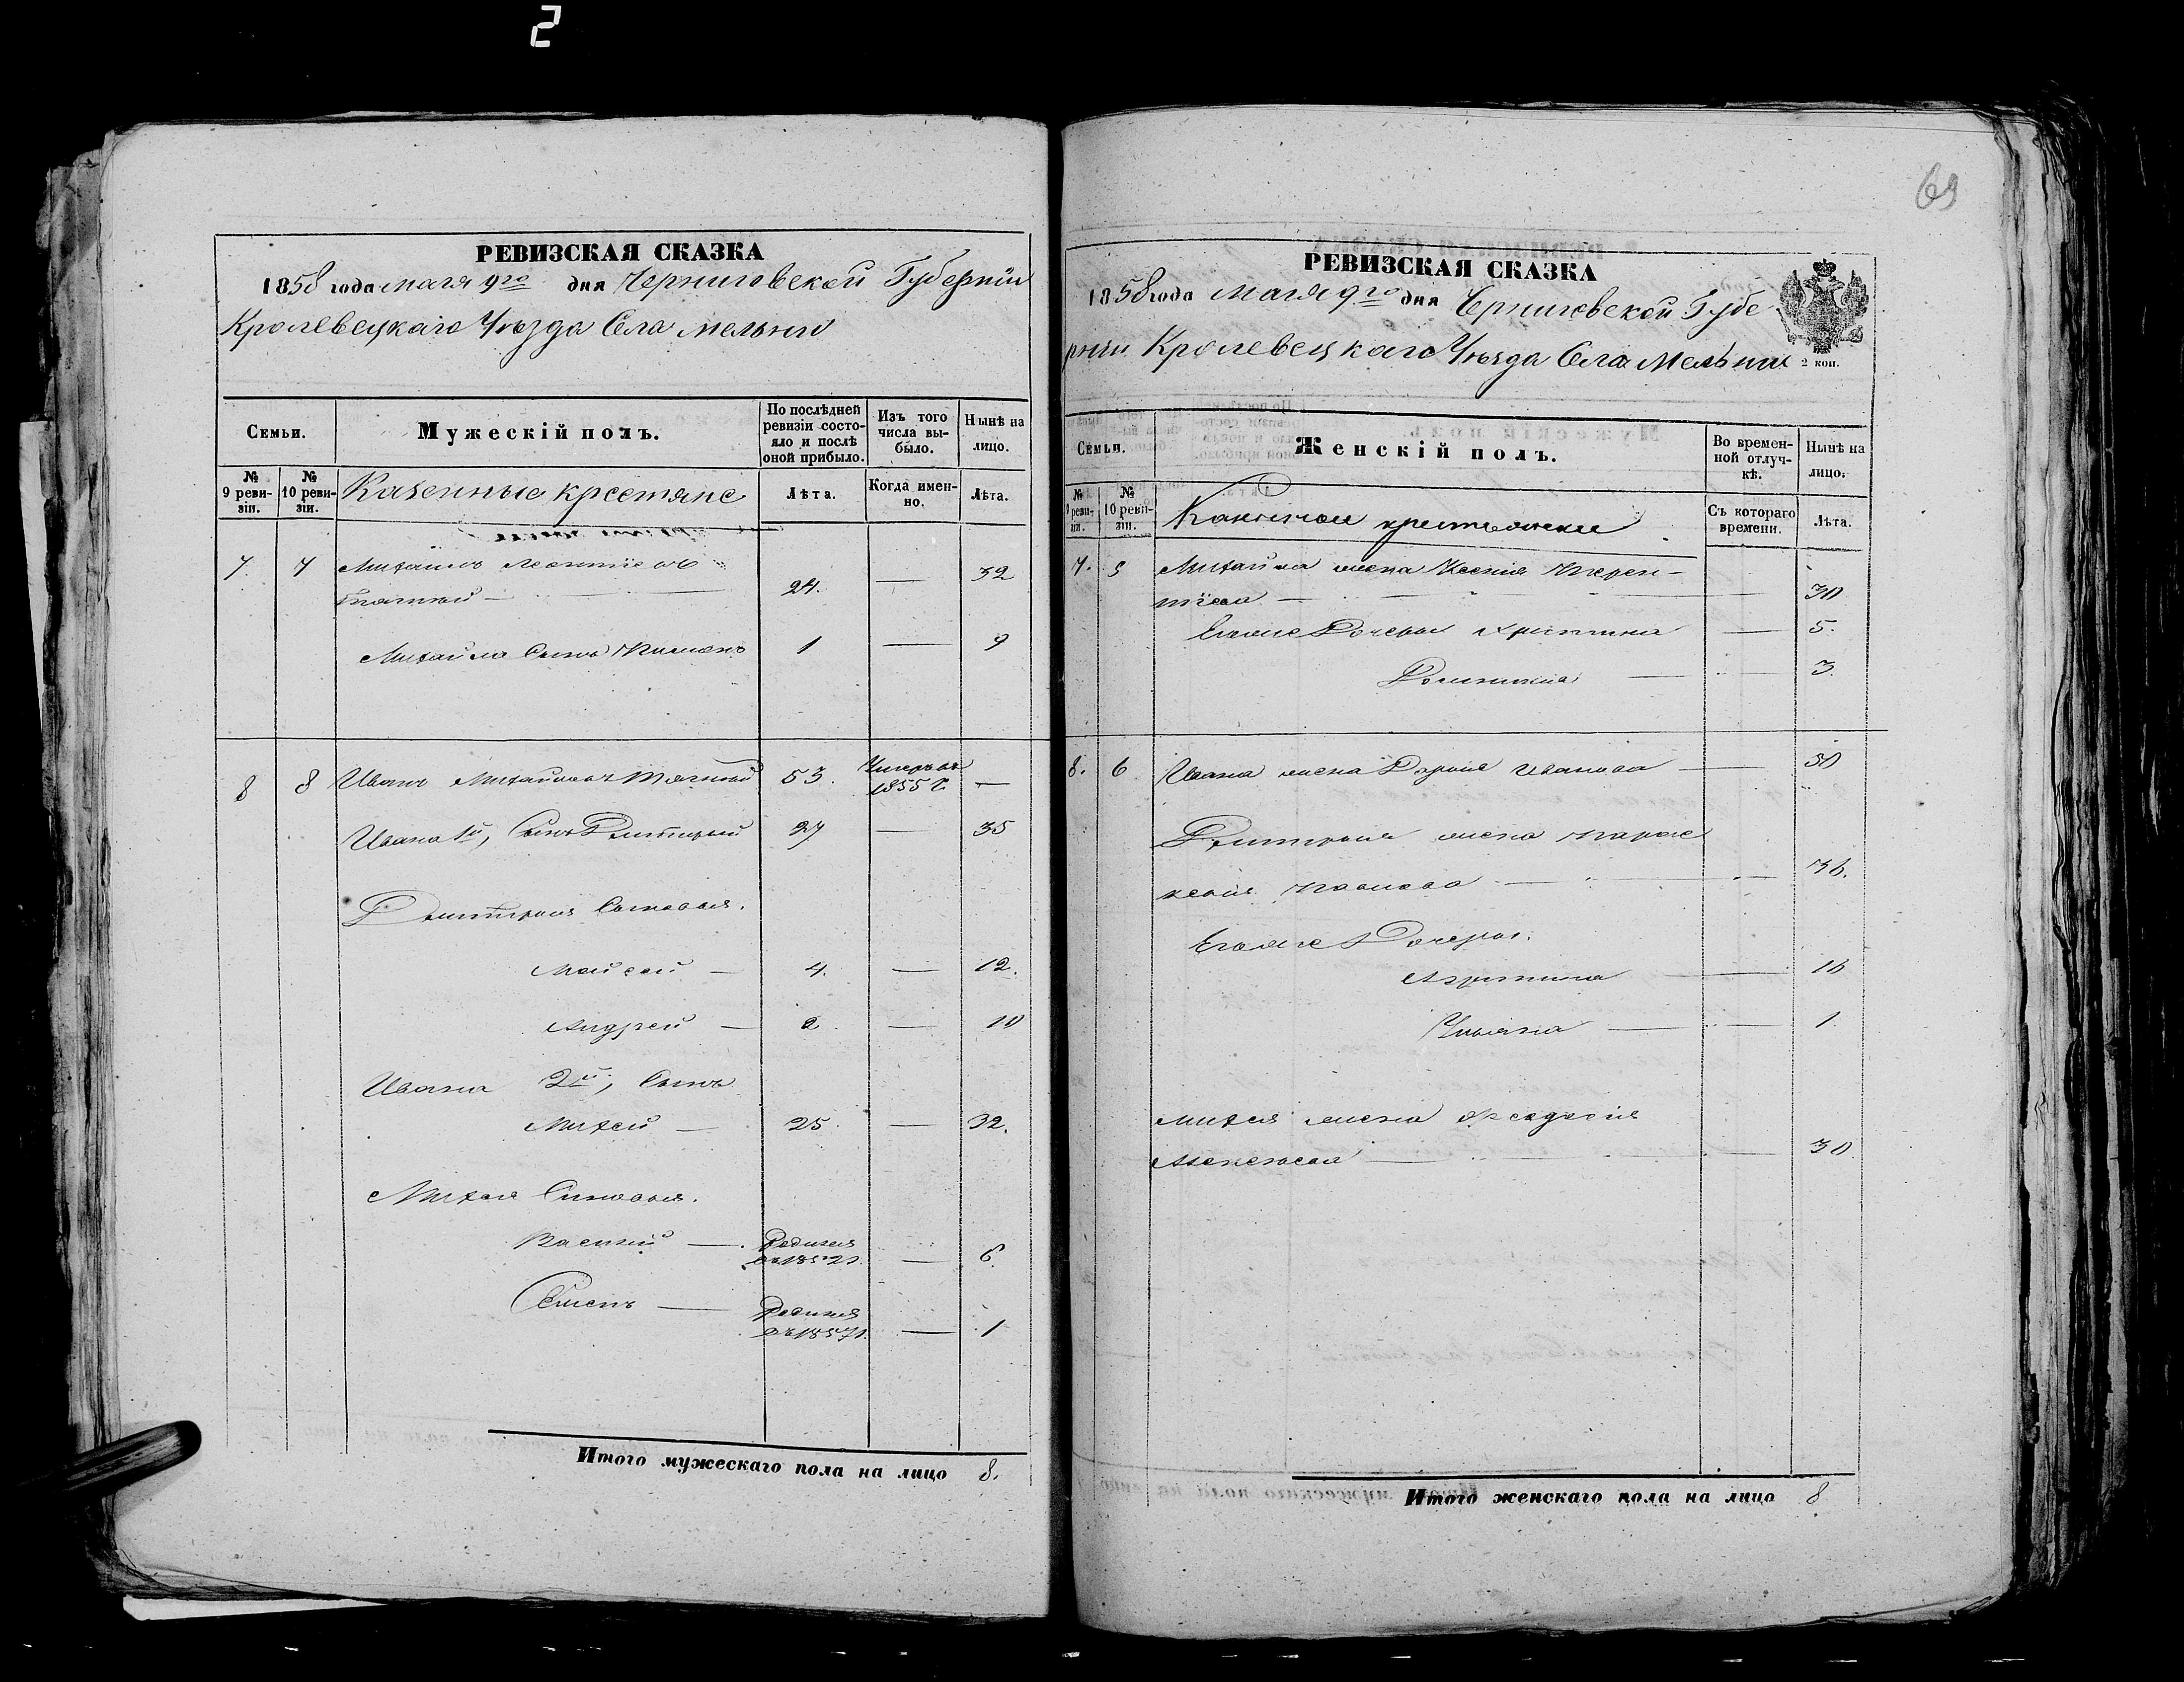 2
РЕВИЗСКАЯ СКАЗКА
1858 года мая 9го дня Черниговской Губернии
Кролевецкаго Уѣзда Села Мельни
Семьи.
Мужескій полъ.
По послѣдней ревизіи состояло и послѣ оной прибыло.
Изъ того числа выбыло.
Нынѣ на лицо.
№ 9 ревизіи.
№ 10 ревизіи.
Казенные крестяне
Лѣта.
Когда именно.
Лѣта.
7. 7 Михаилъ Леонтіевъ
24. — 32
Михайла Сынъ 1 — 9
8 8 Иванъ Михайловъ 53. Умеръ въ 1855 г. —
Ивана 1й, Сынъ Дмитрій 27 — 35
Дмитрия Сыновья.
Мойсей — 4. — 12.
Андрей — 2. — 10
Ивана 2й, Сынъ
Михей — 25. — 32.
Михея Сыновья.
Василій — Родился въ 1852 г. — 6.
Семенъ — Родился въ 1857 г. — 1
Итого мужескаго пола на лицо 8.
69
РЕВИЗСКАЯ СКАЗКА
1858 года мая 9го дня Черниговской Губе
рнии Кролевецкаго Уѣзда Села Мельни
2 коп.
Семьи.
Женскій полъ.
Во временной отлучкѣ.
Нынѣ на лицо.
№ 9 ревизіи.
№ 10 ревизіи.
крестьянки
Съ котораго времени.
Лѣта.
7. 5 Михайла жена Ксения Терен-
тіева — 30
Егоже Дочери Христина — 5.
Домникия — 3.
8. 6 Ивана жена Дария Иванова — 50
Дмитрия жена Парас
кевия Павлова — 36.
Егоже Дочери.
16
Ульяна — 1
Михея жена Феодосия
Алексеева — 30
Итого женскаго пола на лицо 8